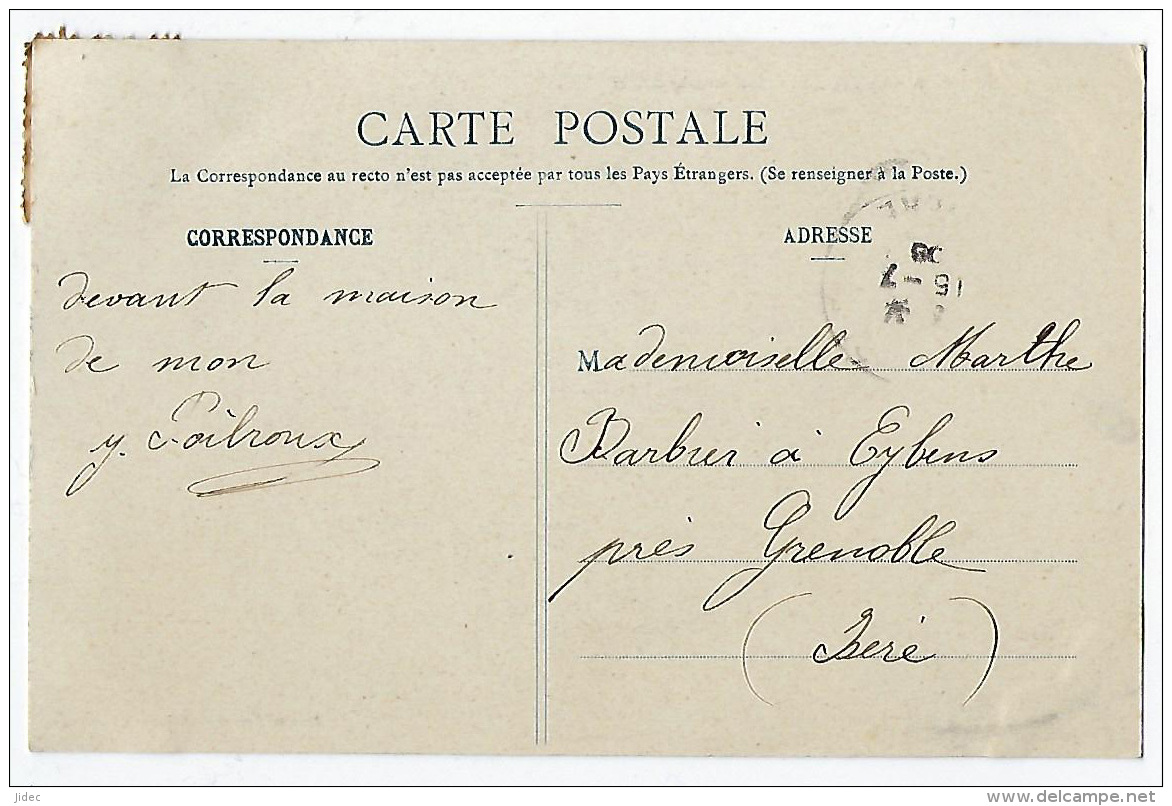 CARTE POSTALE
La Correspondance au recto n'est pas acceptée par tous les Pays Étrangers. (Se renseigner à la Poste.)
CORRESPONDANCE
devant la maison
de mon
y.
ADRESSE
15 - 7
Mademoiselle Marthe
Barbier à Eybens
près Grenoble
(Iseré)
jidec
delcampe.net